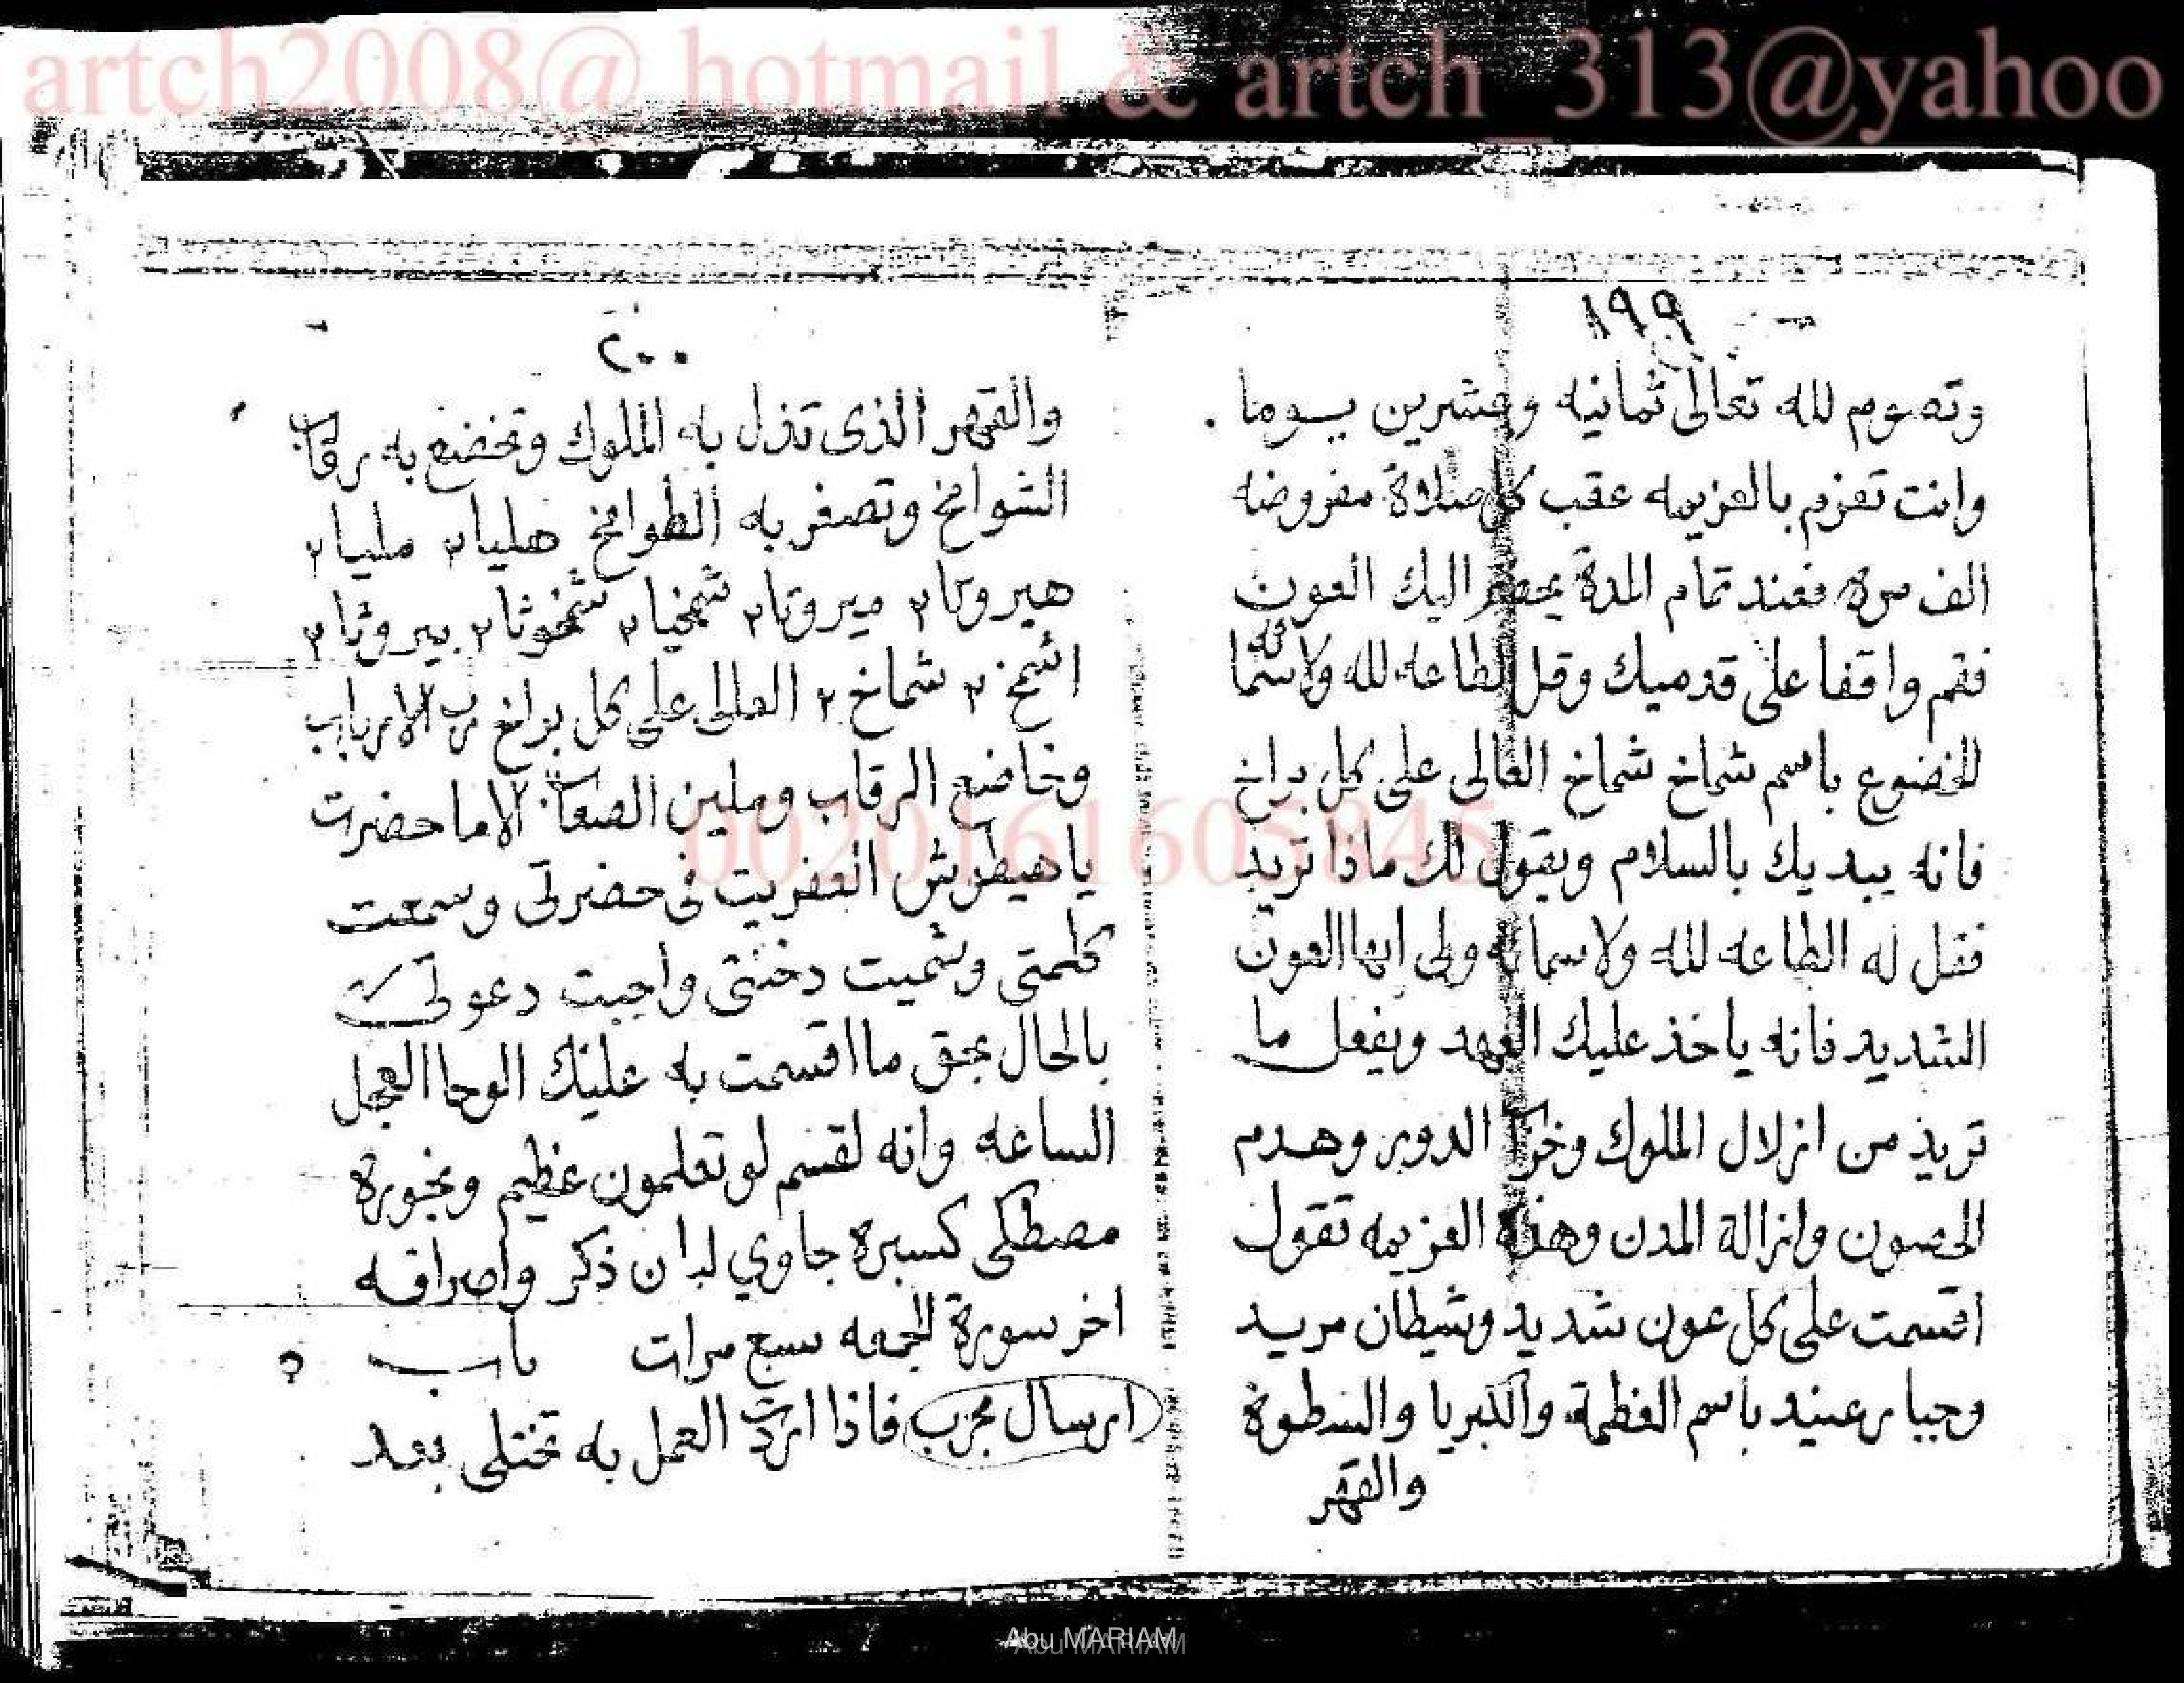 artch2008@ hotmail & artch_313@yahoo
١٩٩
وتصوم لله تعالى ثمانيه وعشرين يوما .
وانت تعزم بالعزيمه عقب كل صلاة مفروضه
الف مره فعند تمام المدة يحضر اليك العون
فقم واقفا على قدميك وقل الطاعه لله ولاسمائه
الخضوع باسم شماخ شماخ العالى على كل براخ
فانه يبديك بالسلام ويقول لك ماذا تريد
فقل له الطاعه لله ولاسمائه ولى ايها العون
الشديد فانه ياخذ عليك العهد ويفعل ما
تريد من انزلال الملوك وخراب الدور وهدم
الحصون وانزالة المدن وهذه العزيمه تقول
اقسمت على كل عون شديد وشيطان مريد
وجبار عنيد باسم العظمة والكبريا والسطوة
والقهر
٢٠٠
والقهر الذى تذل به الملوك وتخضع به رقاب
الشوامخ وتصغر به الطوامخ هليا٢ مليا٢
هيروتا٢ ميروتا٢ شمخيا٢ شمخوثا٢ بيروثا٢
اشمخ ٢ شماخ ٢ العالى على كل براخ رب الارباب
وخاضع الرقاب وملين الصعاب الاما حضرت
ياهيطرش العفريت فى حضرتى وسمعت
كلمتى وشميت دخنتى واجبت دعوتى
بالحال بحق ما اقسمت به عليك الوحا العجل
الساعه وانه لقسم لو تعلمون عظيم وبخوره
مصطكى كسبرة جاوي لبان ذكر واصرافه
اخر سورة الجمعه سبع مرات باب
ارسال مجرب فاذا اردت العمل به تختلى بعد
0020161605845
Abu MARIAM